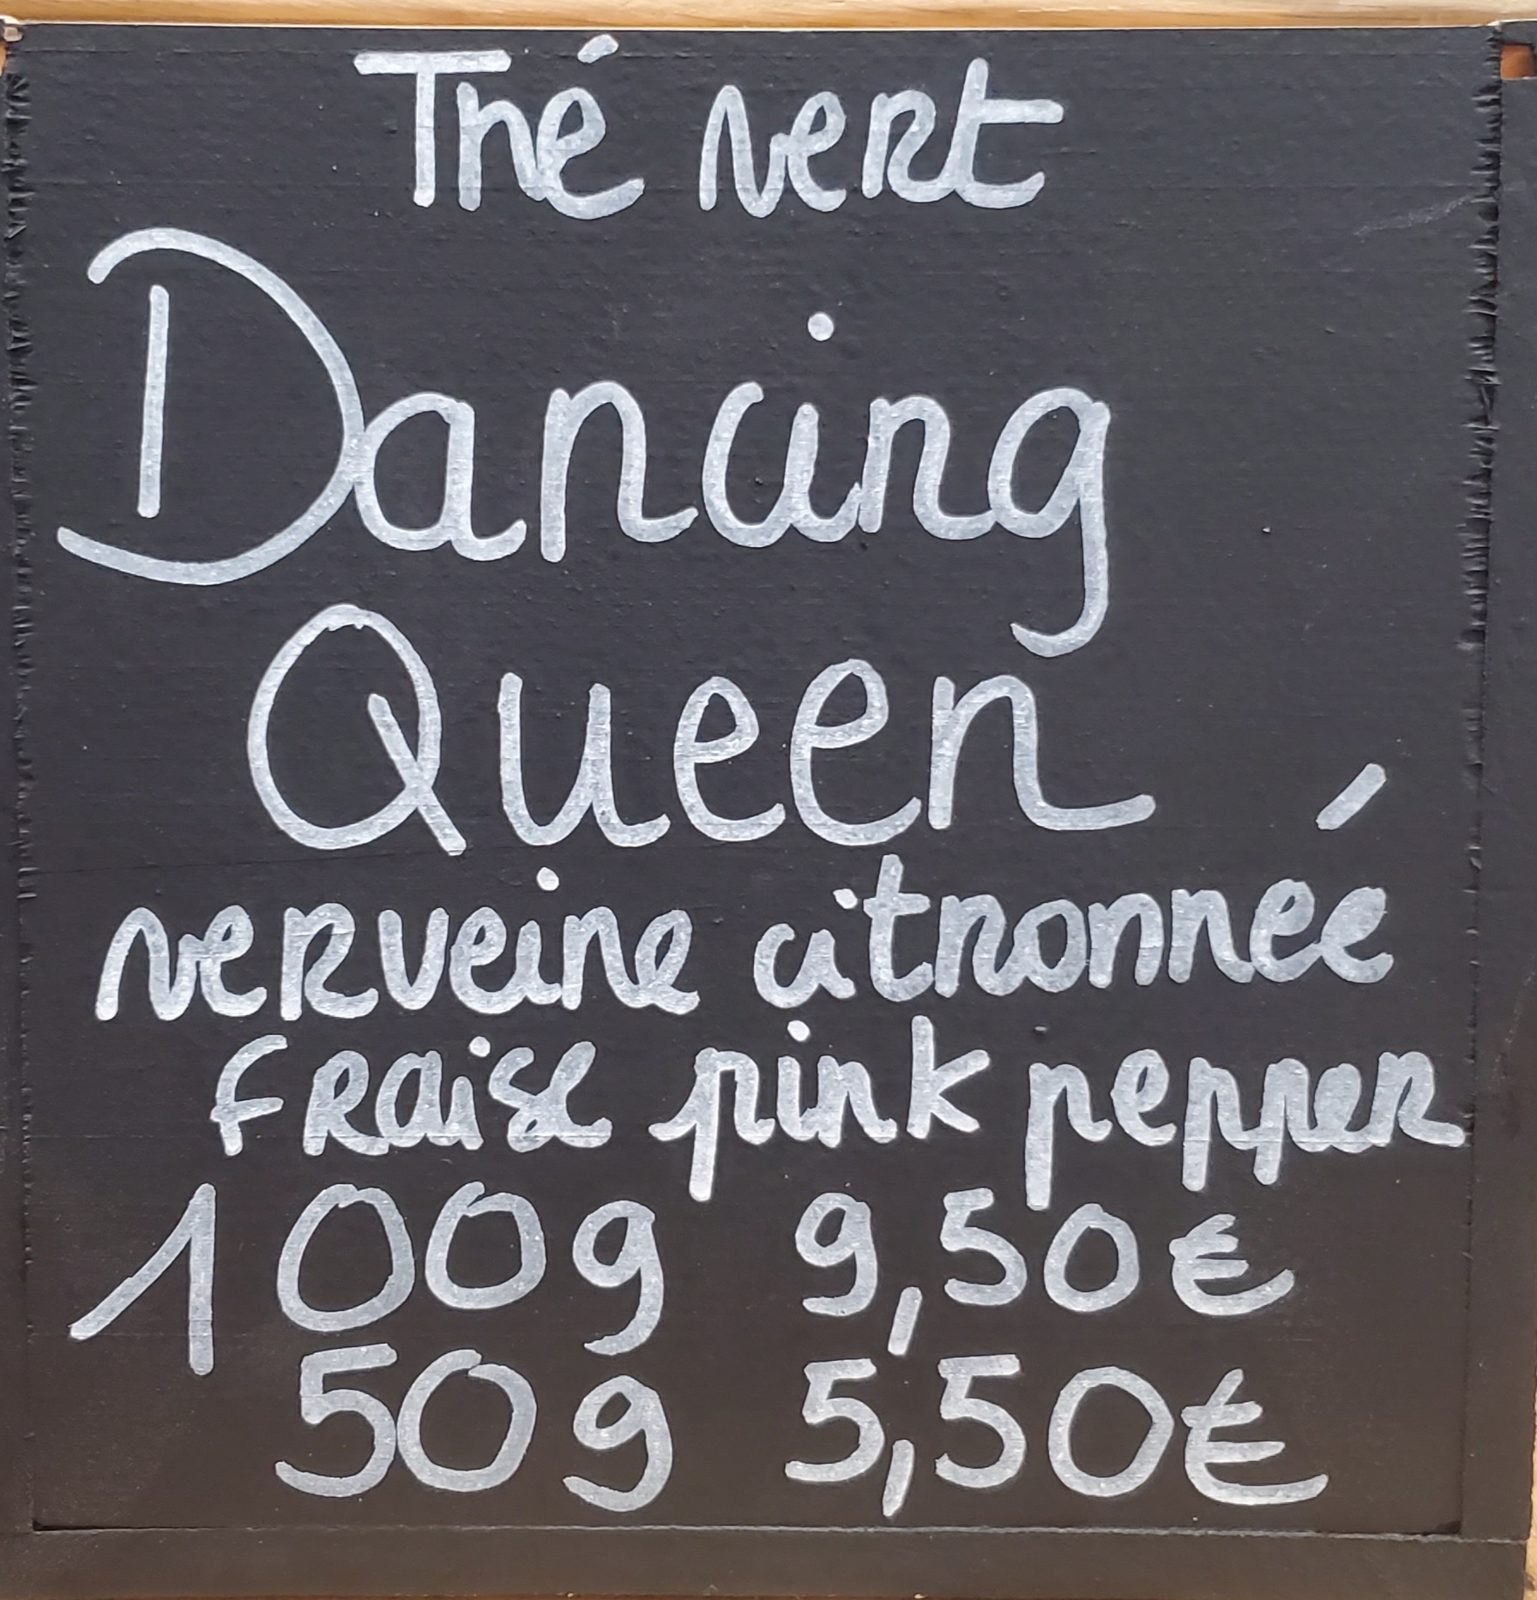 Thé vert
Dancing
Queen
verveine citronnée
fraise pink pepper
100g 9,50€
50g 5,50€